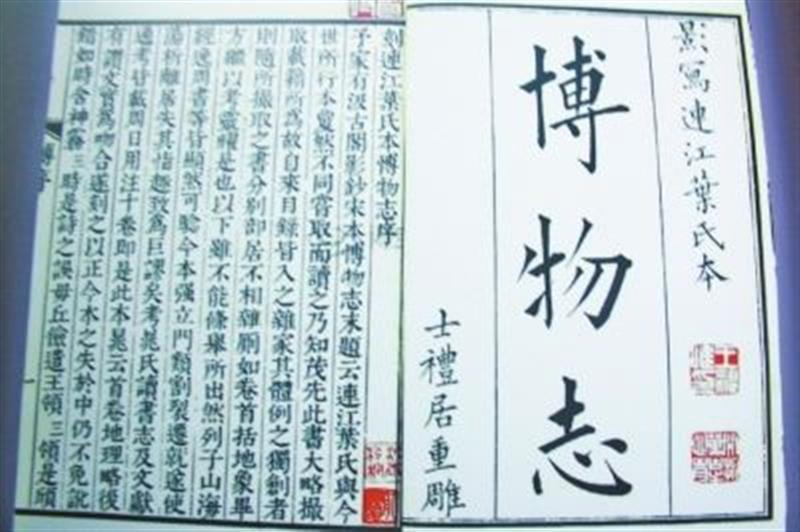 影寫連江葉氏本
博物志
士禮居重雕
刻連江葉氏本博物志序
予家有汲古閣影鈔宋本博物志末題云連江葉氏與今
世所行本夐然不同嘗取而讀之乃知茂先此書大略撮
取載籍所爲故自來目錄皆入之雜家其體例之獨創者
則隨所撮取之書分別部居不相雜厠如卷首括地象畢
方繼以考靈耀是也以下雖不能條舉所出然列子山海
經逸周書等皆顯然可驗今本强立門類割裂遷就遂使
蕩析離居失其恉趣致爲巨謬矣考晁氏讀書志及文獻
通考皆載周日用注十卷即是此本晁云首卷地理略後
有讚文實爲吻合遂刻之以正今本之失於中仍不免
錯如時含神霧三時是詩之誤毋丘儉遣王領三領是頎